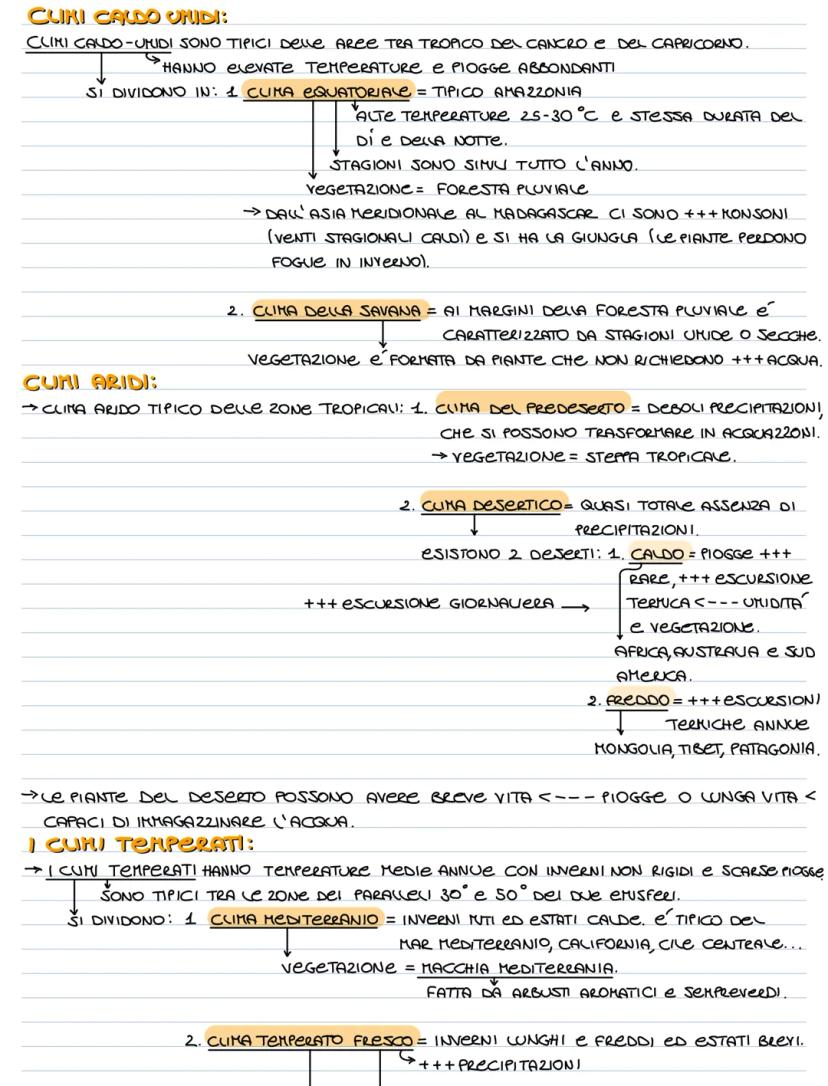 CLIMI CALDO UMIDI:
CLIMI CALDO-UMIDI SONO TIPICI DELLE AREE TRA TROPICO DEL CANCRO E DEL CAPRICORNO.
HANNO ELEVATE TEMPERATURE E PIOGGE ABBONDANTI
SI DIVIDONO IN: 1 CLIMA EQUATORIALE = TIPICO AMAZZONIA
ALTE TEMPERATURE 25-30 °C E STESSA DURATA DEL
DÍ E DELLA NOTTE.
STAGIONI SONO SIMILI TUTTO L'ANNO.
VEGETAZIONE = FORESTA PLUVIALE
→ DALL'ASIA MERIDIONALE AL MADAGASCAR CI SONO +++ MONSONI
(VENTI STAGIONALI CALDI) E SI HA LA GIUNGLA (LE PIANTE PERDONO
FOGLIE IN INVERNO).
2. CLIMA DELLA SAVANA = AI MARGINI DELLA FORESTA PLUVIALE E´
CARATTERIZZATO DA STAGIONI UMIDE O SECCHE.
VEGETAZIONE E´ FORMATA DA PIANTE CHE NON RICHIEDONO +++ ACQUA.
CLIMI ARIDI:
→ CLIMA ARIDO TIPICO DELLE ZONE TROPICALI: 1. CLIMA DEL PREDESERTO = DEBOLI PRECIPITAZIONI,
CHE SI POSSONO TRASFORMARE IN ACQUAZZONI.
→ VEGETAZIONE = STEPPA TROPICALE.
2. CLIMA DESERTICO = QUASI TOTALE ASSENZA DI
PRECIPITAZIONI.
ESISTONO 2 DESERTI: 1. CALDO = PIOGGE +++
RARE, +++ ESCURSIONE
+++ ESCURSIONE GIORNALIERA → TERMICA <--- UMIDITA´
E VEGETAZIONE.
AFRICA, AUSTRALIA E SUD
AMERICA.
2. FREDDO = +++ ESCURSIONI
TERMICHE ANNUE
MONGOLIA, TIBET, PATAGONIA.
→ LE PIANTE DEL DESERTO POSSONO AVERE BREVE VITA <--- PIOGGE O LUNGA VITA <
CAPACI DI IMMAGAZZINARE L'ACQUA.
I CLIMI TEMPERATI:
→ I CLIMI TEMPERATI HANNO TEMPERATURE MEDIE ANNUE CON INVERNI NON RIGIDI E SCARSE PIOGGE
SONO TIPICI TRA LE ZONE DEI PARALLELI 30° E 50° DEI DUE EMISFERI.
SI DIVIDONO: 1 CLIMA MEDITERRANIO = INVERNI MITI ED ESTATI CALDE. E´ TIPICO DEL
MAR MEDITERRANIO, CALIFORNIA, CILE CENTRALE...
VEGETAZIONE = MACCHIA MEDITERRANIA.
FATTA DA ARBUSTI AROMATICI E SEMPREVERDI.
2. CLIMA TEMPERATO FRESCO = INVERNI LUNGHI E FREDDI ED ESTATI BREVI.
+++ PRECIPITAZIONI